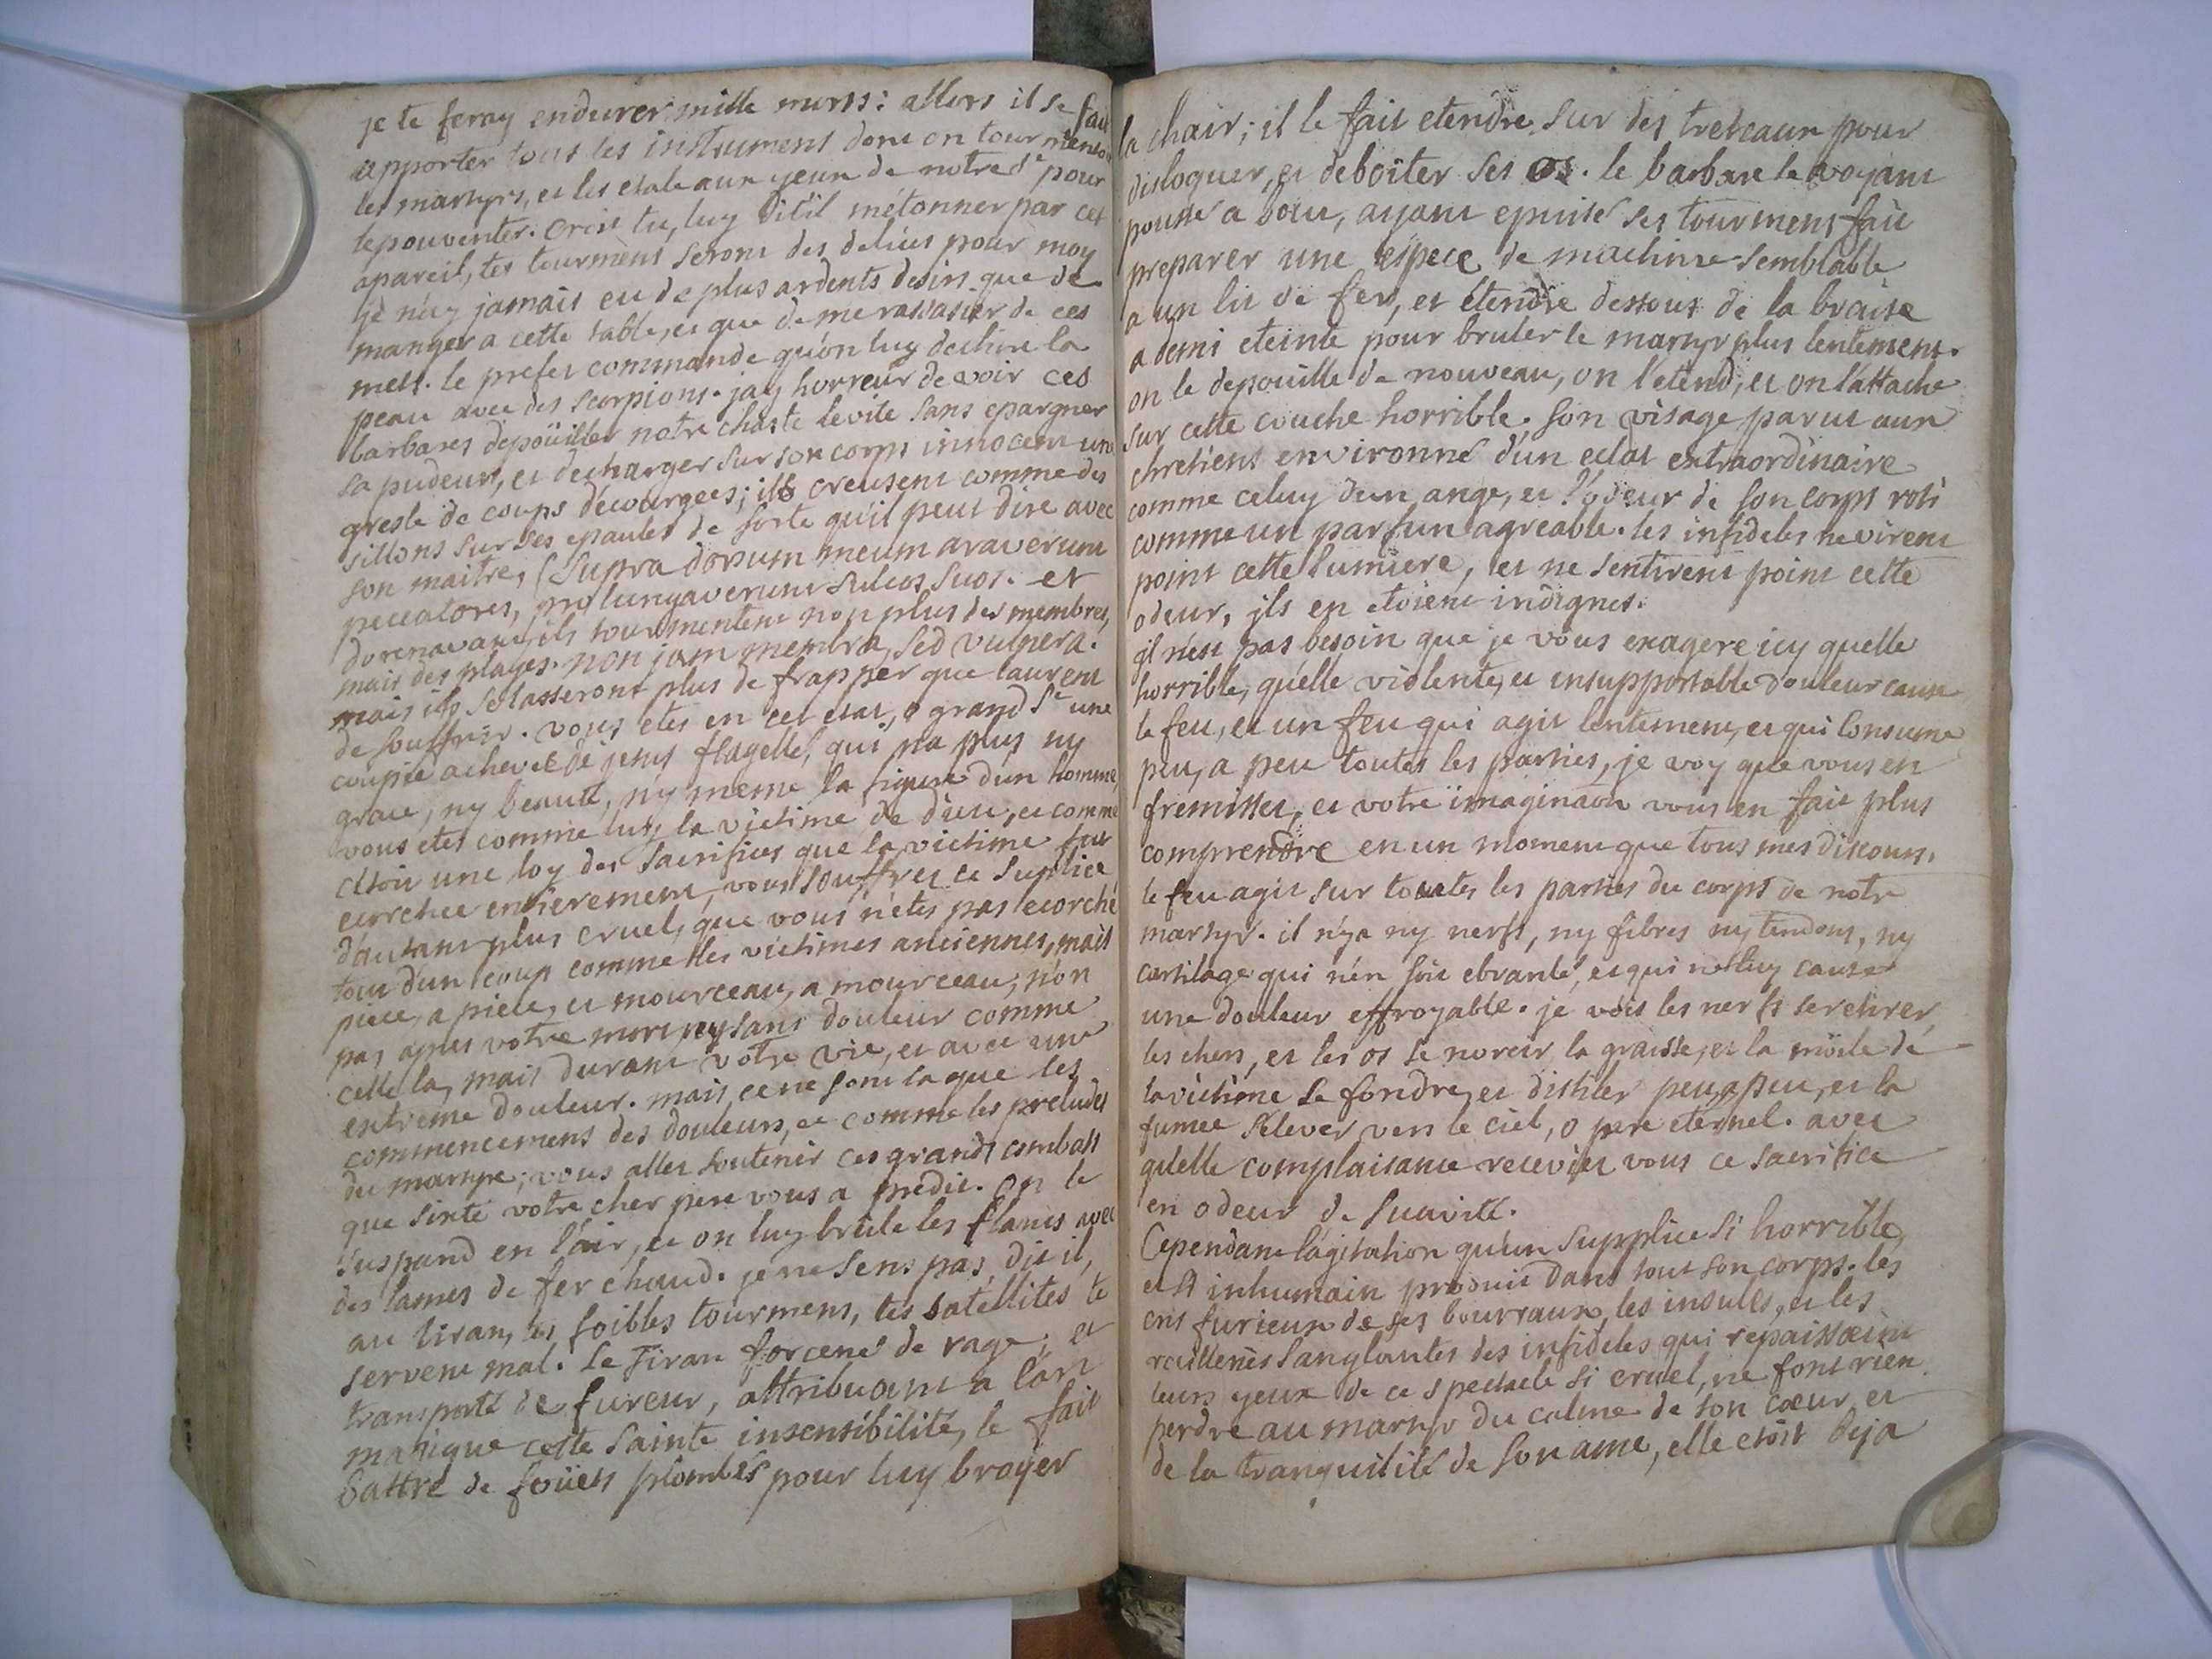 je te feray endurer mille morts: allors il se fait
apporter tous les instrumens dont on tourmentoit
les martyrs, et les etale aux yeux de notre St pour
lepouventer. crois tu, luy dit il m'étonner par cet
apareil, tes tourmens seront des delices pour moy
je n'ay jamais eu de plus ardents desirs que de
manger a cette table, et que de me rassasier de ces
mets. le prefet commande qu'on luy dechire la
peau avec des scorpions. jay horreur de voir ces
barbares depoüiller notre chaste levite sans epargner
sa pudeur, et decharger sur son corps innocent une
gresle de coups descourgees; ils creusent comme des
sillons sur ses epaules de sorte qu'il peut dire avec
son maitre, (supra dorsum meum araverunt
peccatores, prolungaverunt sulcos suos. et
dorenavant ils tourmentent non plus des membres,
mais des playes. non jam membra, sed vulnera.
mais ils se lasseront plus de frapper que laurent
de souffrir. vous etes en cet etat, o grand St une
coupie achevée de jesus flagellé, qui n'a plus ny
grace, ny beauté, ny meme la figure d'un homme,
vous etes comme luy la victime de dieu, et comme
cétoit une loy des sacrifices que la victime fut
ecorchee entierement, vous souffrez ce suplice
d'autant plus cruel, que vous n'etes pas ecorché
tout d'un coup comme les victimes anciennes, mais
piece, a piece, et mourceau, a mourceau, non
pas apres votre mort ny sans douleur comme
celle la, mais durant votre vie, et avec une
extreme douleur. mais ce ne sont la que les
commencemens des douleurs, et comme les preludes
du martyre; vous allez soutenir ces grands combats
que sixte votre cher pere vous a predit. On le
suspand en l'air, et on luy brule les flancs avec
des lames de fer chaud. je ne sens pas, dit il,
au tiran, tes foibles tourmens, tes satellites te
servent mal. Le Tiran forcené de rage, et
transporté de fureur, attribuant a l'art
magique cette sainte insensibilité, le fait
battre de foüets plombés pour luy broyer
la chair; il le fait etendre sur des treteaux pour
disloquer, et deboiter ses os. le barbare le voyant
poussé a bout, ayant epuisé ses tourmens fait
preparer une espece de machine semblable
a un lit de fer, et étendre dessous de la braise
a demi eteinte pour bruler le martyr plus lentement.
on le depoüille de nouveau, on l'etend, et on l'attache
sur cette couche horrible. son visage parut aux
chretiens environné d'un eclat extraordinaire
comme celuy d'un ange, et l'odeur de son corps roti
comme un parfun agreable. les infideles ne virent
point cette lumiere, et ne sentirent point cette
odeur, ils en etoient indignes.
il n'est pas besoin que je vous exagere icy quelle
horrible, quélle violente, et insupportable douleur cause
le feu, et un feu qui agit lentement, et qui consume
peu, a peu toutes les parties, je voy que vous en
fremissez, et votre imaginaon vous en fait plus
comprendre en un moment que tous mes discours.
le feu agit sur toutes les parties du corps de notre
martyr. il n'ya ny nerfs, ny fibres ny tendons, ny
cartilage qui n'én soit ebranlé, et qui ne luy cause
une douleur effroyable. je vois les nerfs se retirer,
les chers, et les os se norcir, la graisse, et la möele de
la victime se fondre, et distiler peu, a peu, et la
fumée s'élever vers le ciel, o pere eternel. avec
qu'elle complaisance receviez vous ce sacrifice
en odeur de suavité.
Cependant l'agitation qu'un supplice si horrible,
et si inhumain produit dans tout son corps. les
cris furieux de ses bourraux, les insultes, et les
railleries sanglantes des infideles qui repaissoient
leurs yeux de ce spectacle si cruel, ne font rien
perdre au martyr du calme de son cœur et
de la tranquilité de son ame, elle etoit deja